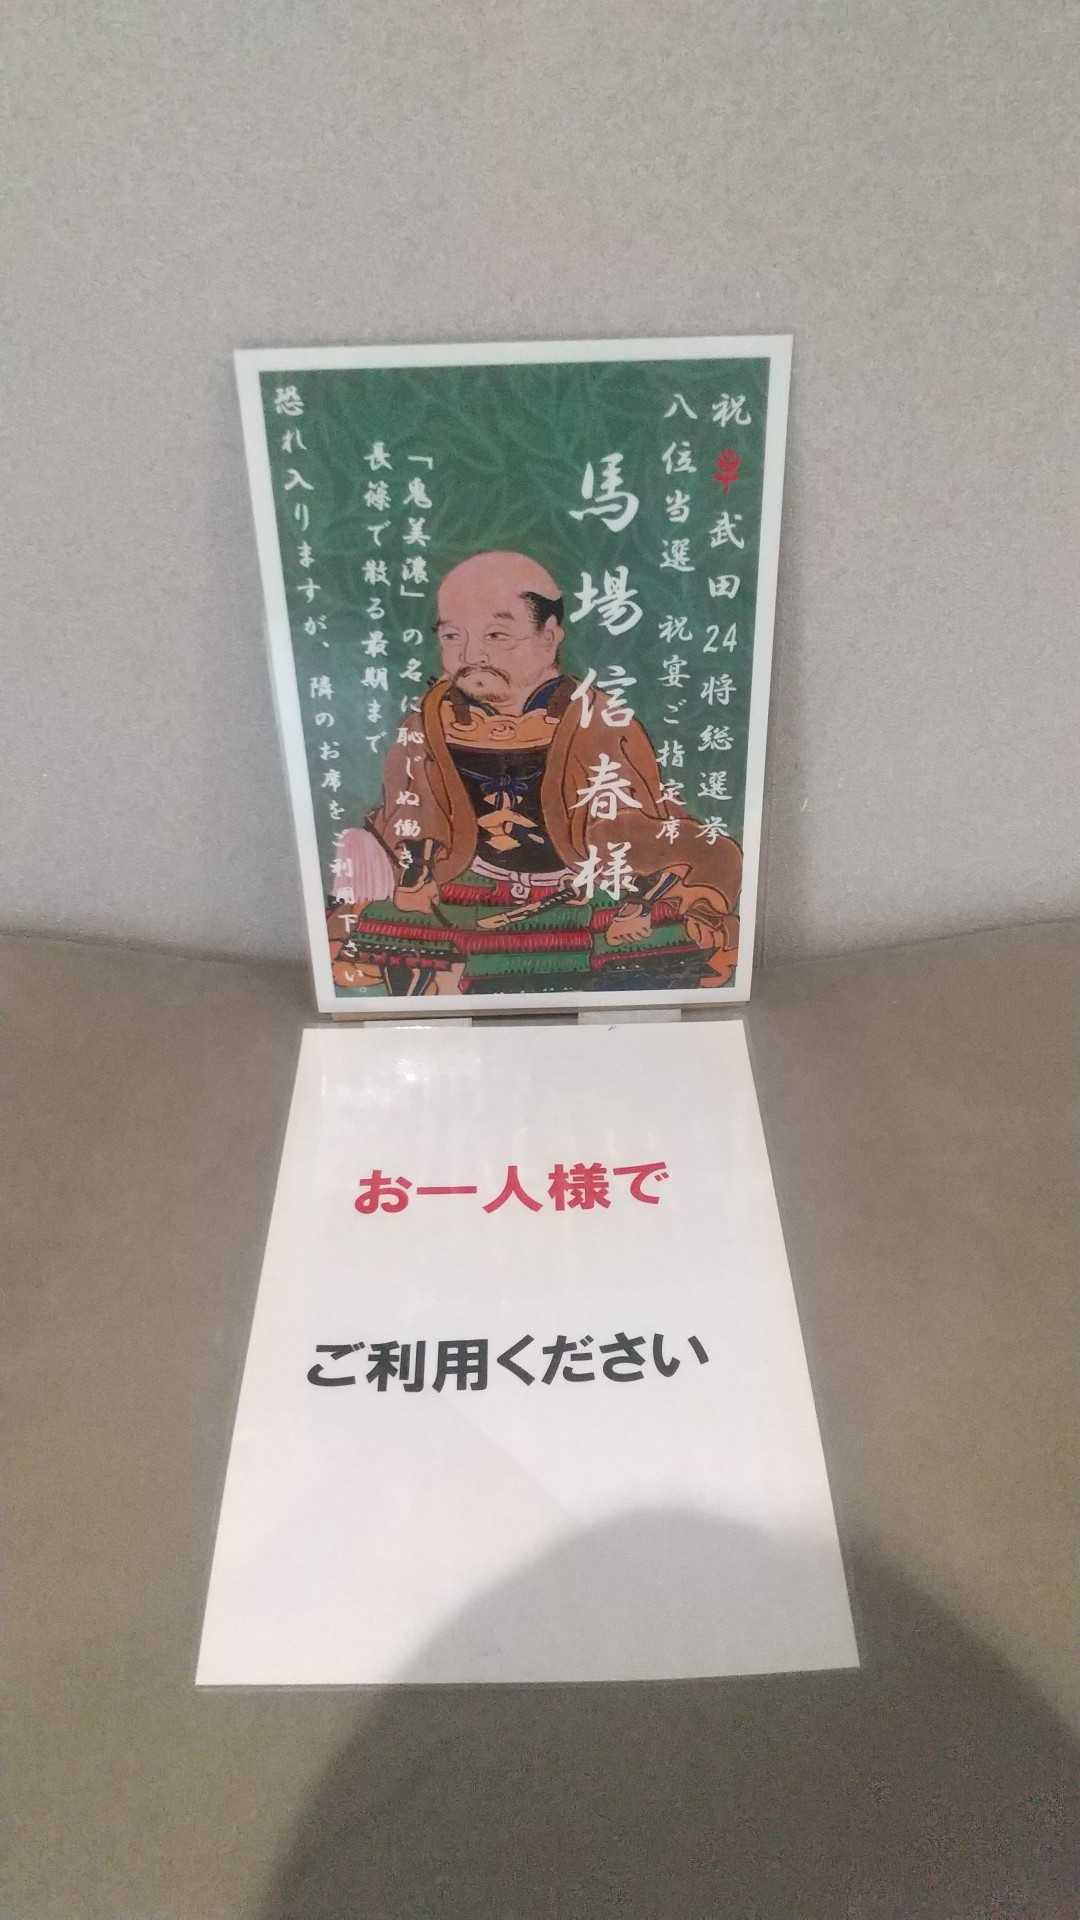 祝 武田24将総選挙
八位当選 祝宴ご指定席
馬場信春様
「鬼美濃」の名に恥じぬ働き
長篠で散る最期まで
恐れ入りますが、隣のお席をご利用下さい。
お一人様で
ご利用ください